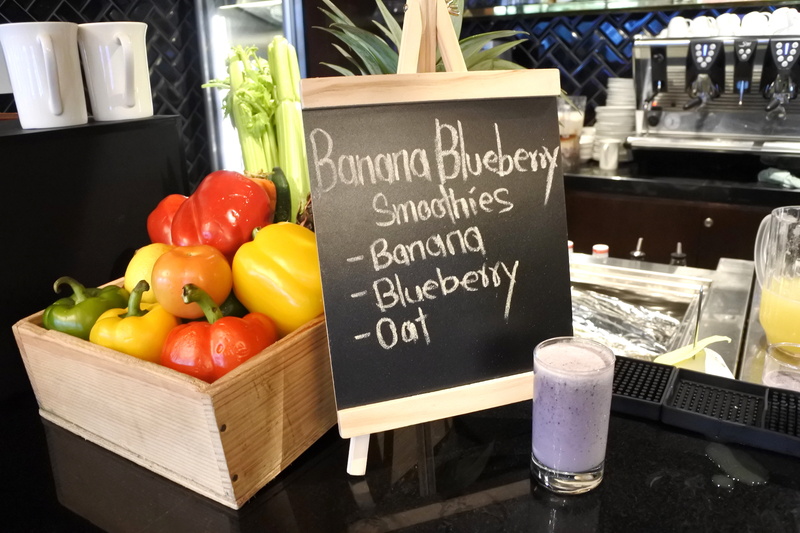 Banana Blueberry
Smoothies
- Banana
- Blueberry
- Oat